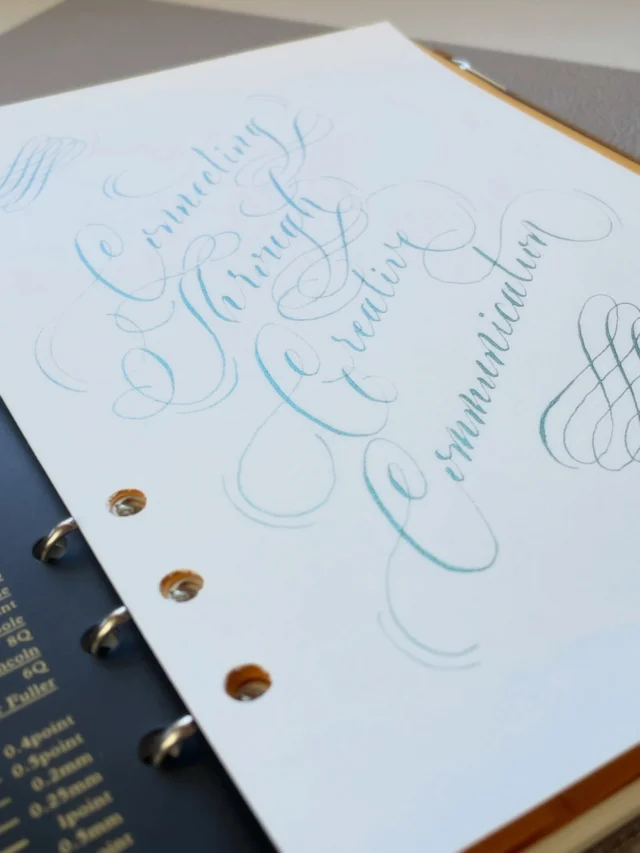 Connecting
Through
Creative
Communication
8Q
6Q
Fuller
0.4point
0.5point
0.2mm
0.25mm
1point
0.5mm